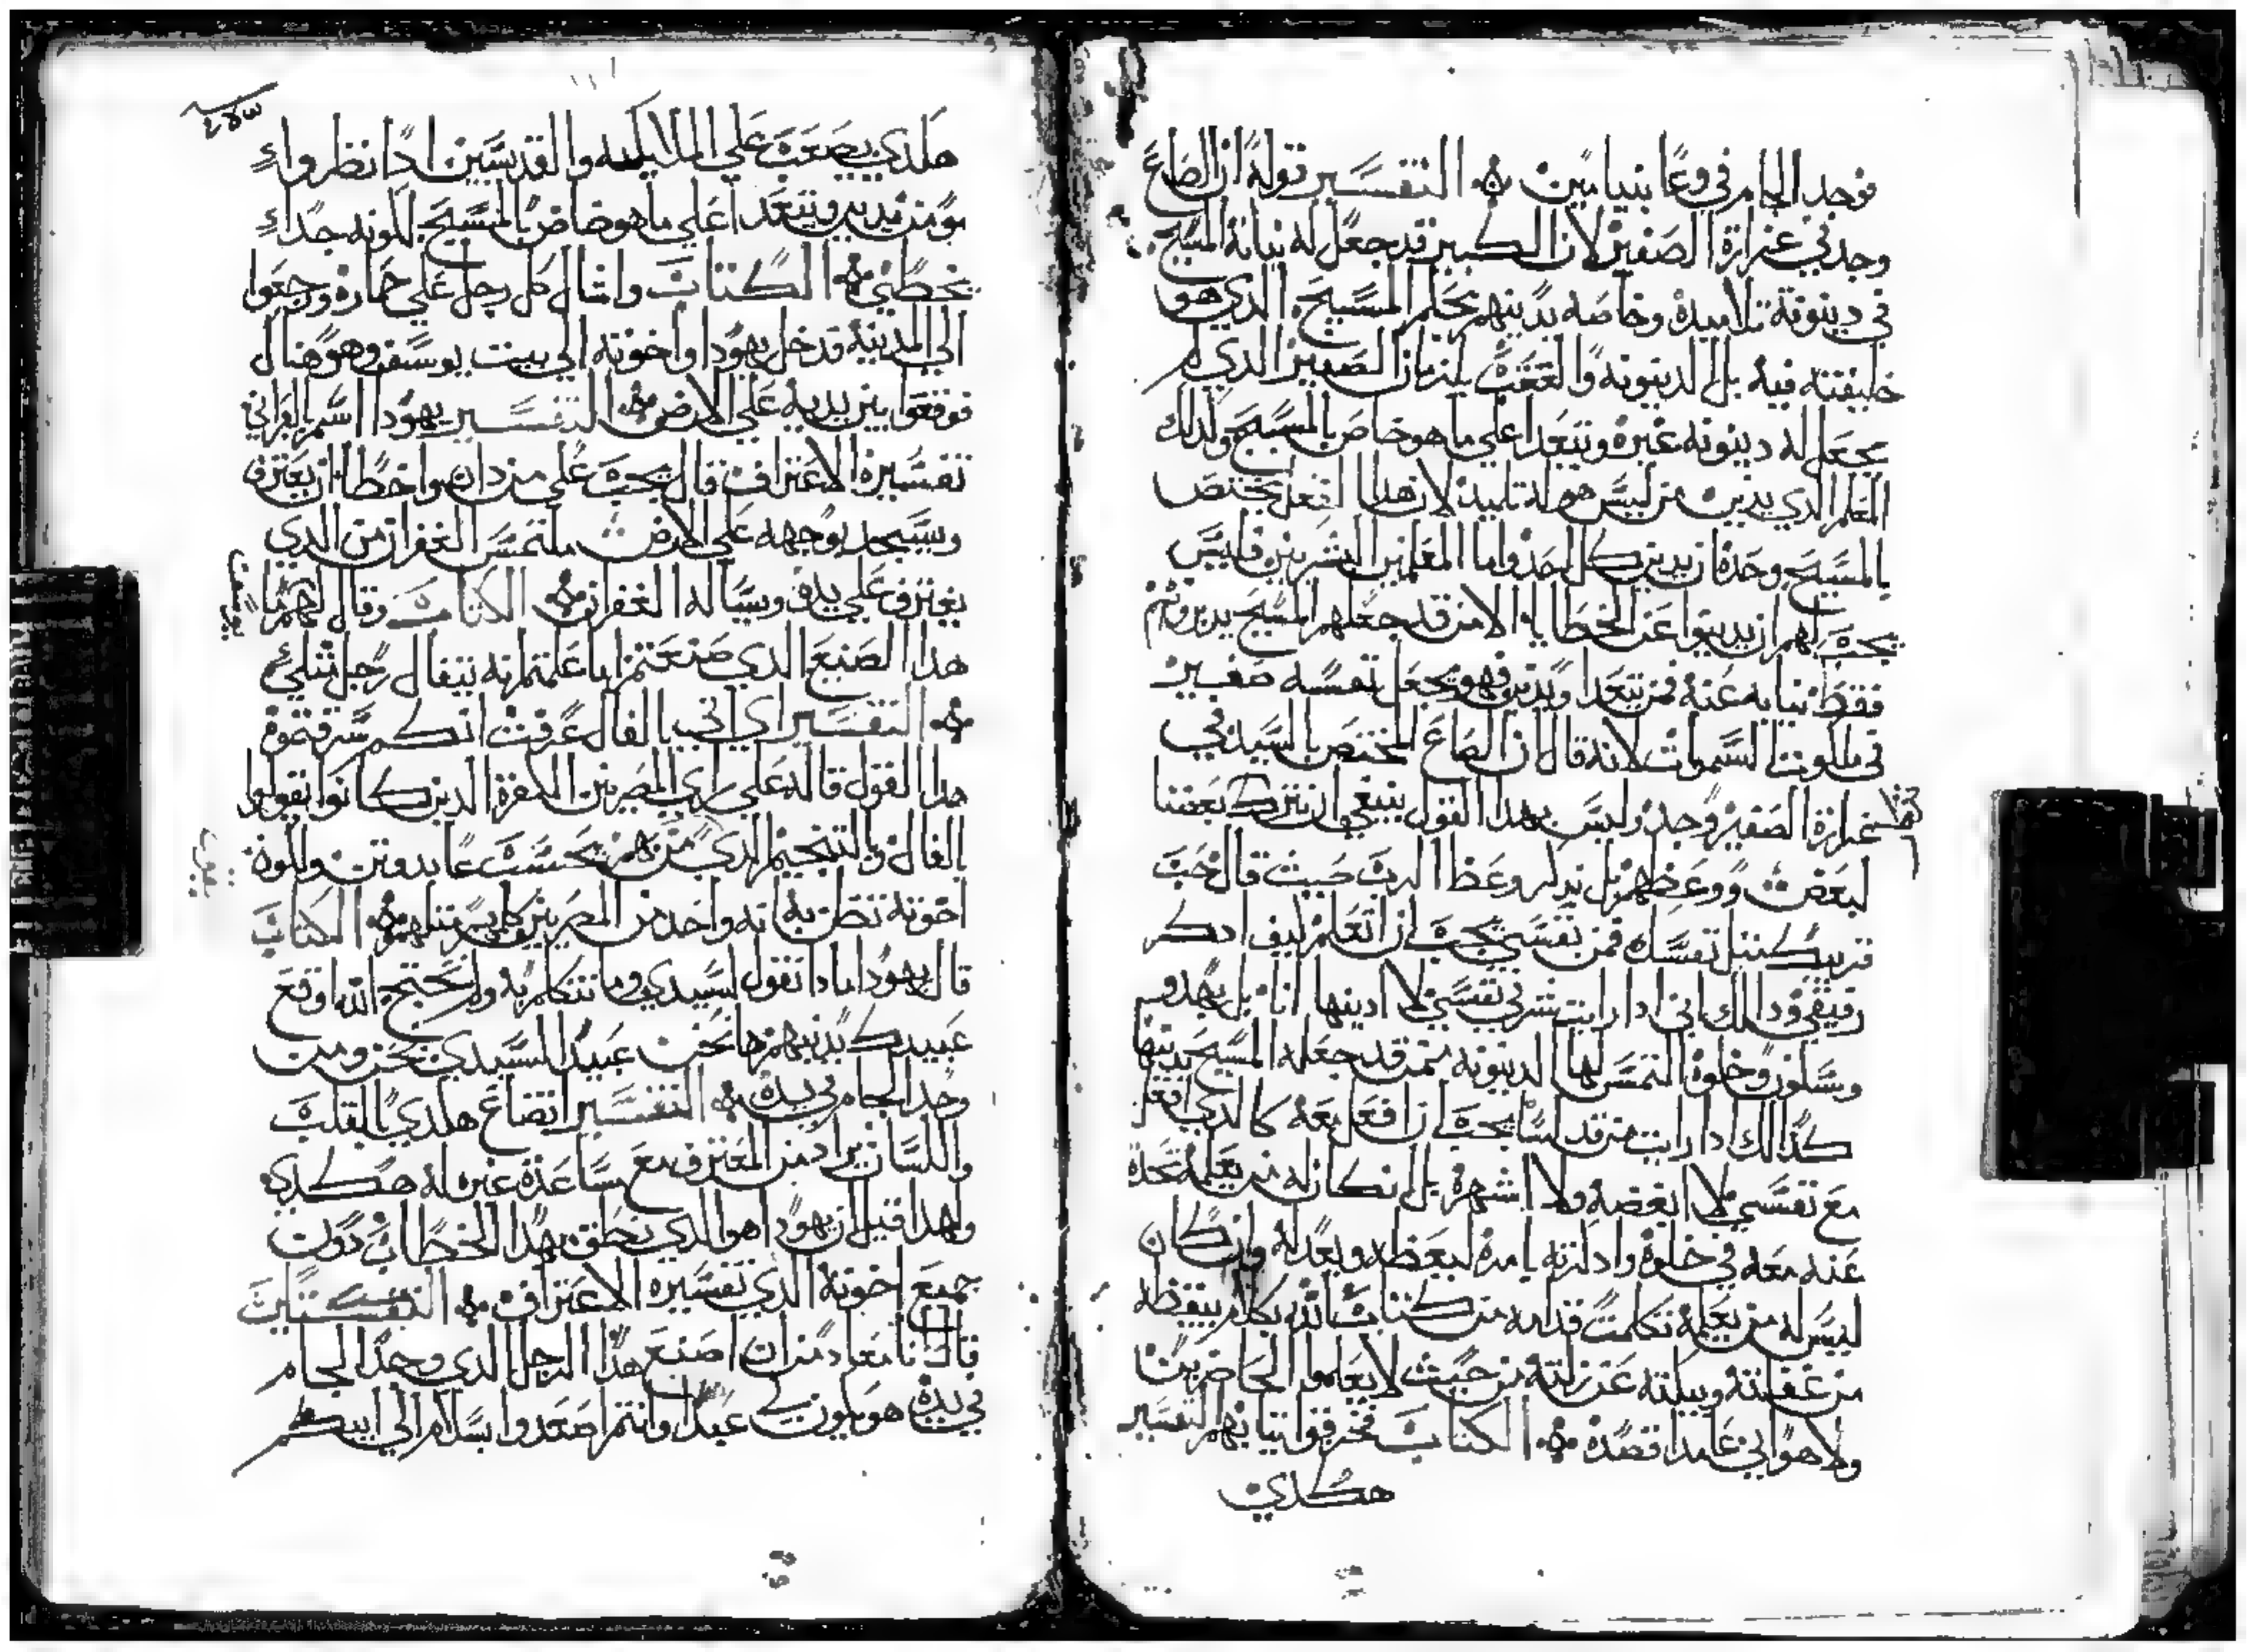 فوجد الجام في وعا بنيامين ܀ التفسير قوله ان الصاع
وجد في غرارة الصغير لان الكبير قد جعل له نيابة المسيح
في دينونة تلاميده وخاصه يدينهم بحكم المسيح الدي هو
خليفته فيه بل الدينونه والعقب يلزمان الصغير الدي لم
يجعل له دينونه غيره ويتعدا على ما هو خاص بالمسيح ولدلك
المعلم الدي يدين من ليس هو له تلميد لان هدا الفعل يختص
بالمسيح وحده ان يدين كل احد واما المعلمين البشريين فليس
يجب لهم ان يدينوا عن الخطايا الا من قد جعلهم المسيح يدبروهم
فقط نيابه عنه فمن يتعدا ويدين فهو يجعل نفسه صغير
في ملكوت السموات لانه قال ان الصاع المختص بالسيد في
غرارة الصغير وجد وليس بهدا القول ينبغي ان نترك بعضنا
لبعض ووعظهم بل ندكر وعظ الرب حيث قال حب
قريبك مثل نفسك فمن نفسي يجب ان اتعلم كيف ادكر
رفيقي ودالك اني ادا رايت شر في نفسي لا ادينها انا بل بهدو
وسكون وخلوه التمس لها الدينونه ممن قد جعله المسيح يدينها
كدالك ادا رايت من قد اسا يجب ان افعل معه كالدي افعل
مع نفسي لا ابغضه ولا اشهره بل ان كان له من يعلمه تحدة
عنه معه في خلوه وادكرته يامره ليعظه ويعدله وان كان
ليس له من يعلمه تكلمت قدامه من كتاب الله بكلام يتيقظه
من غفلته ويبكته عن زلته من حيث لا يعلموا الحاضرين
ولا هو اني عامدا قصده ܀ الكتاب فخرقوا تيابهم التفسير
هكدي
هكدي يصعب على الملايكه والقديسين ادا نظروا
مومن يدين ويتعدا على ما هو خاص بالمسيح لكونه جدا
يخطي ܀ الكتاب واشال كل رجل على حماره ورجعوا
الى المدينه فدخل يهودا واخوته الى بيت يوسف وهو هناك
فوقعوا بين يديه على الارض ܀ التفسير يهودا اسم العبراني
تفسيره الاعتراف قال يجب على من دان واخطا ان يعترف
ويسجد بوجهه على الارض ملتمس الغفران من الدي
يعترف على يده ويساله الغفران ܀ الكتاب وقال لهم ما
هدا الصنيع الدي صنعتم اما علمتم انه يتفال رجل مثلي
܀ التفسير اي اني بالفال عرفت انكم سرقتموه
هدا القول قاله على راي المصريين الكفرة الدين كانوا يقولوا
بالفال وبالتنجيم الدي من هم يحسب عابد وتن ولكون
اخوته تظن به انه واحد من المصريين كلمهم متلهم ܀ الكتاب
قال يهودا مادا نقول لسيدي وما نتكلم به ولم نحتج الله اوقع
عبيدك بدنبهم ها نحن عبيد السيدي نحن ومن
وجد الجام في يده ܀ التفسير اتضاع هكدي بالقلب
واللسان يراد من المعترف مع مساعدة غيره له هكدي
ولهدا قيل ان يهودا هو الدي نطق بهدا الخطاب دون
جميع اخوته الدي تفسيره الاعتراف ܀ الكتاب
قال انا معاد من ان اصنع هدا الرجل الدي وجد الجام
في يده هو يكون لي عبدا وانتم اصعدوا بسلام الى ابيكم